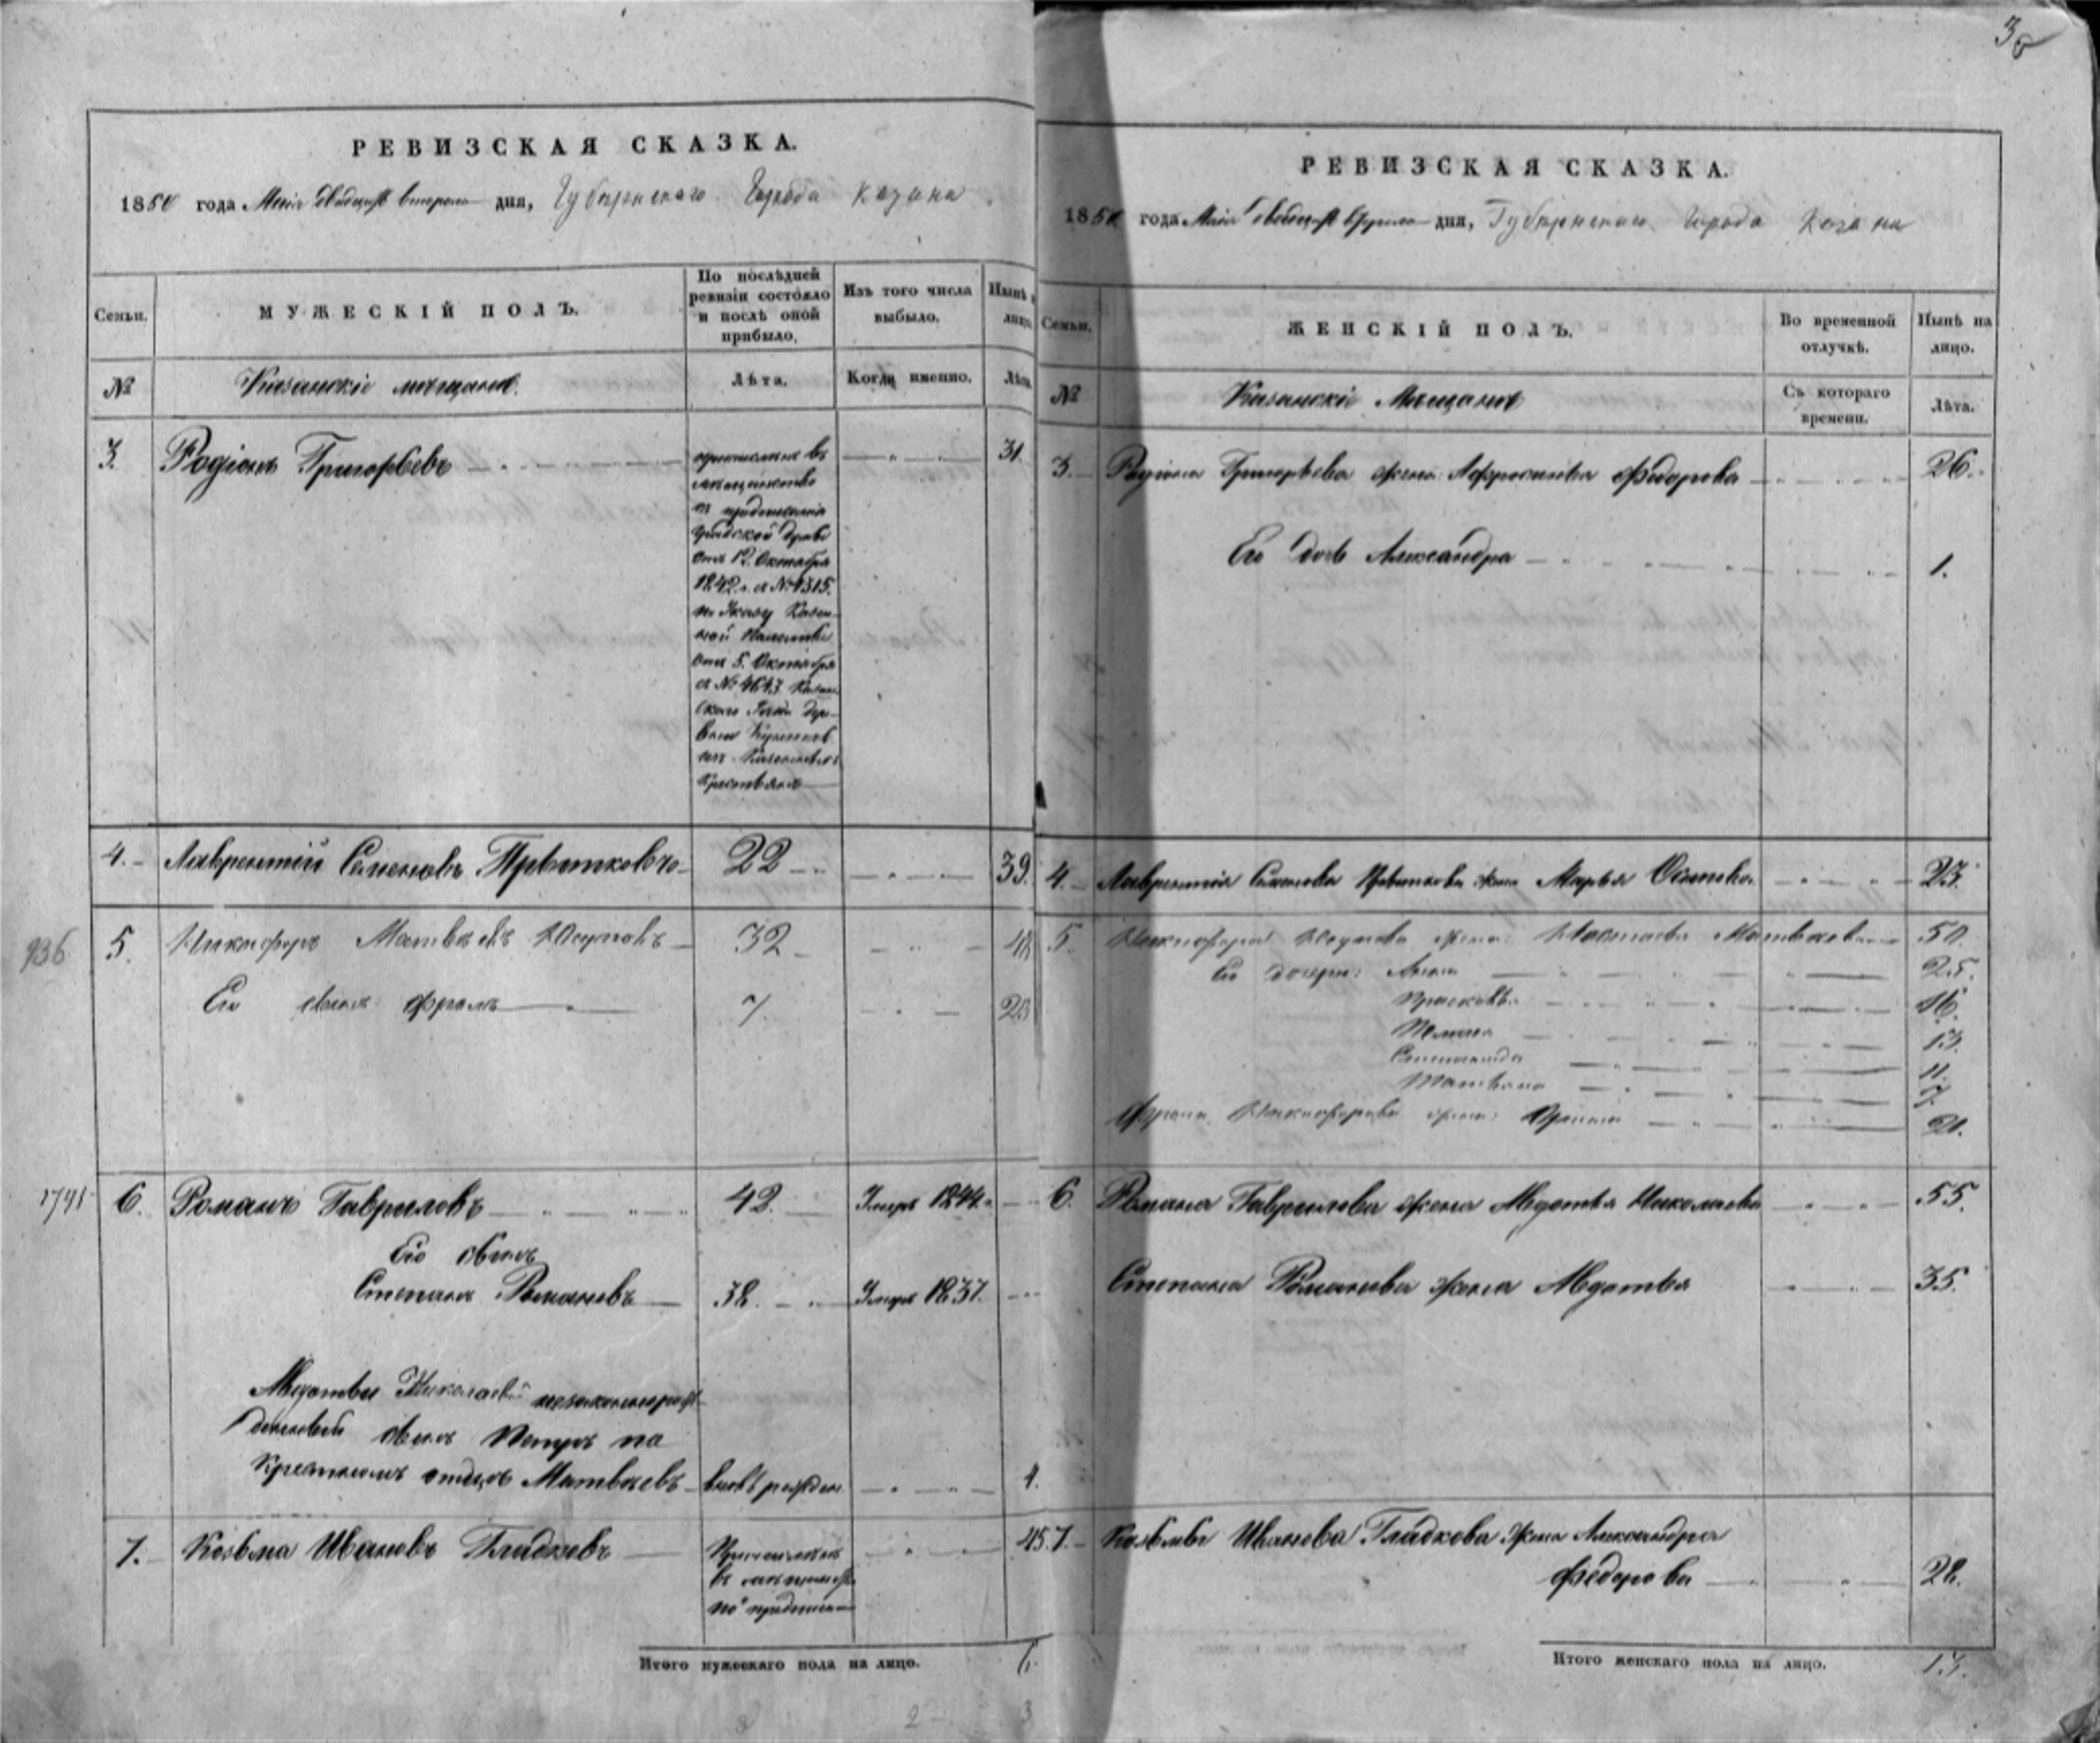 РЕВИЗСКАЯ СКАЗКА.
1850 года Маія двадцать втораго дня, Губернскаго Города Казана
Семьи.
МУЖЕСКІЙ ПОЛЪ.
По послѣдней
ревизіи состояло
и послѣ оной
прибыло.
Изъ того числа
выбыло.
Нынѣ
лицо.
№
Казанскіе мѣщане.
Лѣта.
Когда именно.
Лѣта
3. Родіонъ Григорьевъ
причисленъ въ
мѣщанство
по предписанію
Градской Думы
отъ 12. Октября
1842 г. за № 4315.
по Указу Казен-
ной Палаты
отъ 5. Октября
за № 4643. Казан-
скаго уѣзда дер-
вни
изъ Казенныхъ
крестьянъ
31.
4. Лаврентій Семеновъ Прытковъ 22 39.
936
5. Никифоръ Матвѣевъ Юсуповъ 32
Его сынъ Фролъ 7. 23
1791
6. Романъ Гавриловъ 42. Умеръ 1844.
Его сынъ
Степанъ Романовъ 38. Умеръ 1837.
Авдотьи Николаевой незаконнорож-
денный сынъ Петръ по
крестномъ отцѣ Матвѣевъ вновь рожден 1.
7. Козьма Ивановъ Гладковъ
Причисленъ
въ мѣщанство
по предписанію
45.
Итого мужескаго пола на лицо. 6.
2 3
38
РЕВИЗСКАЯ СКАЗКА.
1850 года Маія двадцать втораго дня, Губернскаго Города Казана
Семьи.
ЖЕНСКІЙ ПОЛЪ.
Во временной
отлучкѣ.
Нынѣ на
лицо.
№
Казанскіе Мѣщане
Съ котораго
времени.
Лѣта.
3. Родіона Григорьева жена Афросинья Федорова 26.
Его дочь Александра 1.
4. Лаврентія Семенова Прыткова жена Марья Осипова 23.
5. Никифора Юсупова жена: Настасья Матвѣева 50.
Его дочери: Анна 25.
Прасковья 16.
13.
Степанида 11.
Татьяна 7.
Фрола Никифорова жена: Ирина 21.
6. Романа Гаврилова жена Авдотья Николаева 55.
Степана Романова жена Авдотья 35.
7. Козьмы Иванова Гладкова жена Александра
Федорова 28.
Итого женскаго пола на лицо. 13.